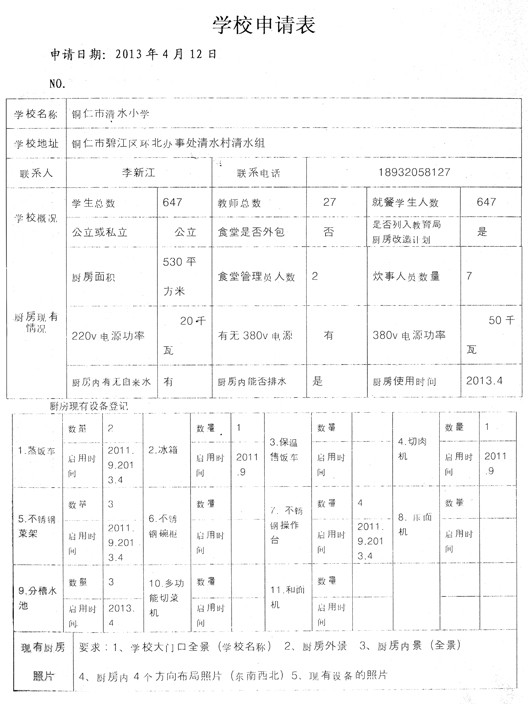 学校申请表
申请日期: 2013年4月12日
NO.
学校名称 铜仁市清水小学
学校地址 铜仁市碧江区环北办事处清水村清水组
联系人 李新江 联系电话 18932058127
学校概况 学生总数 647 教师总数 27 就餐学生人数 647
公立或私立 公立 食堂是否外包 否 是否列入教育局厨房改造计划 是
厨房现有情况 厨房面积 530平方米 食堂管理员人数 2 炊事人员数量 7
220v电源功率 20千瓦 有无380v电源 有 380v电源功率 50千瓦
厨房内有无自来水 有 厨房内能否排水 是 厨房使用时间 2013.4
厨房现有设备登记
1.蒸饭车 数量 2 2.冰箱 数量 1 3.保温售饭车 数量 4.切肉机 数量 1
启用时间 2011.9,2013.4 启用时间 2011.9 启用时间 启用时间 2011.9
5.不锈钢菜架 数量 3 6.不锈钢碗柜 数量 7. 不锈钢操作台 数量 4 8. 压面机 数量
启用时间 2011.9,2013.4 启用时间 启用时间 2011.9,2013.4 启用时间
9.分槽水池 数量 3 10.多功能切菜机 数量 11.和面机 数量
启用时间 2013.4 启用时间 启用时间
现有厨房照片 要求:1、学校大门口全景(学校名称) 2、厨房外景 3、厨房内景(全景)
4、厨房内4个方向布局照片(东南西北)5、现有设备的照片